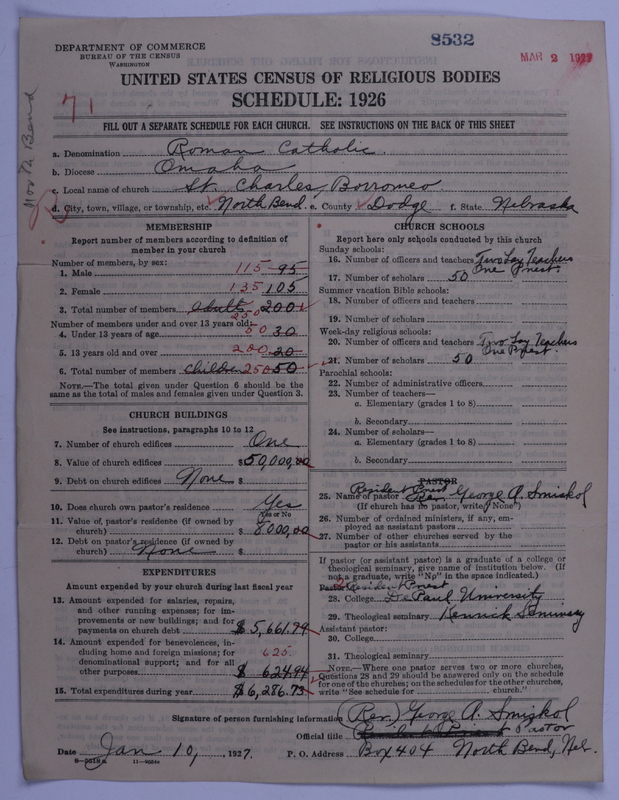 8532
DEPARTMENT OF COMMERCE
BUREAU OF THE CENSUS
WASHINGTON
MAR 2 1927
UNITED STATES CENSUS OF RELIGIOUS BODIES
SCHEDULE: 1926
71
North Bend
FILL OUT A SEPARATE SCHEDULE FOR EACH CHURCH. SEE INSTRUCTIONS ON THE BACK OF THIS SHEET
a. Denomination Roman Catholic
b. Diocese Omaha
c. Local name of church St. Charles Borromeo
d. City, town, village, or township, etc. North Bend e. County Dodge f. State Nebraska
MEMBERSHIP
Report number of members according to definition of member in your church
Number of members, by sex:
1. Male 115 95
2. Female 135 105
3. Total number of members adults 200
250
Number of members under and over 13 years old:
4. Under 13 years of age 50 30
5. 13 years old and over 200 20
6. Total number of members Children 250 50
NOTE.—The total given under Question 6 should be the
same as the total of males and females given under Question 3.
CHURCH BUILDINGS
See instructions, paragraphs 10 to 12
7. Number of church edifices One
8. Value of church edifices $50,000,00
9. Debt on church edifices None $
10. Does church own pastor's residence? Yes
Yes or No
11. Value of pastor's residence (if owned by
church) $8000,00
12. Debt on pastor's residence (if owned by
church) None $
EXPENDITURES
Amount expended by your church during last fiscal year
13. Amount expended for salaries, repairs,
and other running expenses; for im-
provements or new buildings; and for
payments on church debt $5,661.79
14. Amount expended for benevolences, in-
cluding home and foreign missions; for 625
denominational support; and for all
other purposes $ 624.94
15. Total expenditures during year $6,286.73
CHURCH SCHOOLS
Report here only schools conducted by this church
Sunday schools:
16. Number of officers and teachers Two Lay Teachers
One Priest.
17. Number of scholars 50
Summer vacation Bible schools:
18. Number of officers and teachers
19. Number of scholars
Week-day religious schools:
20. Number of officers and teachers Two Lay Teachers
One Priest.
21. Number of scholars 50
Parochial schools:
22. Number of administrative officers
23. Number of teachers—
a. Elementary (grades 1 to 8)
b. Secondary
24. Number of scholars—
a. Elementary (grades 1 to 8)
b. Secondary
PASTOR
Resident Priest
25. Name of pastor Rev. George A. Smiskol
(If church has no pastor, write "None")
26. Number of ordained ministers, if any, em-
ployed as assistant pastors
27. Number of other churches served by the
pastor or his assistants
If pastor (or assistant pastor) is a graduate of a college or
theological seminary, give name of institution below. (If
not a graduate, write "No" in the space indicated.)
Pastor: Resident Priest
28. College De Paul University
29. Theological seminary Kenrick Seminary
Assistant pastor:
30. College
31. Theological seminary
NOTE.—Where one pastor serves two or more churches,
Questions 28 and 29 should be answered only on the schedule
for one of the churches; on the schedules for the other churches,
write "See schedule for church."
Signature of person furnishing information (Rev.) George A. Smiskol
Official title Resident Priest Pastor
Date Jan 10, 1927. P. O. Address Box 404 North Bend, Neb.